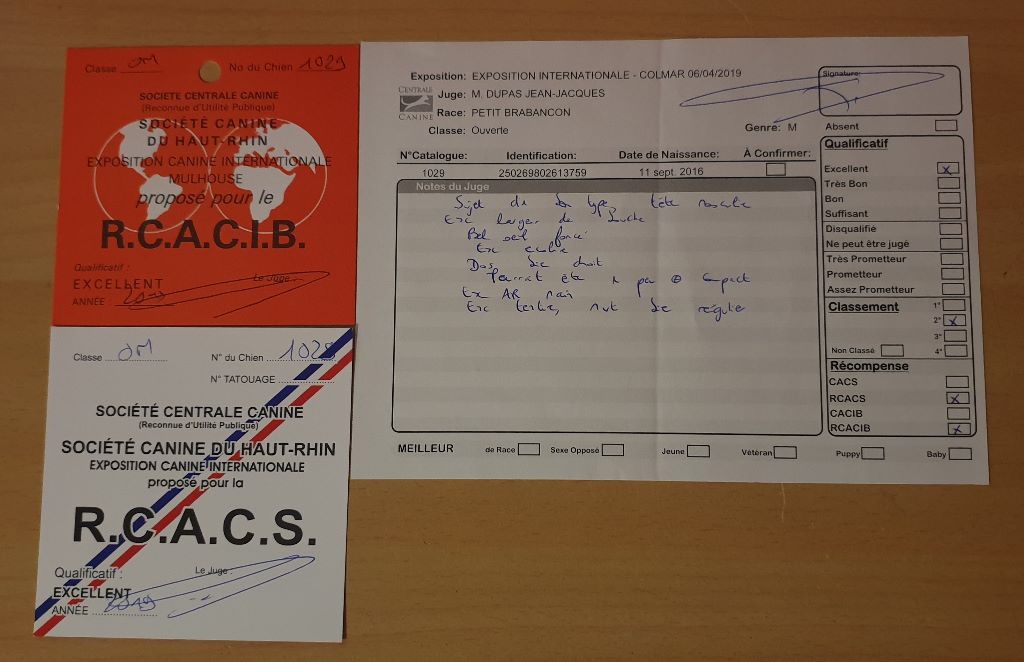 Classe OM No du Chien 1029
SOCIETE CENTRALE CANINE
(Reconnue d'Utilité Publique)
SOCIÉTÉ CANINE
DU HAUT-RHIN
EXPOSITION CANINE INTERNATIONALE
MULHOUSE
proposé pour le
R.C.A.C.I.B.
Qualificatif :
EXCELLENT
Le Juge :
ANNÉE : 2019
Classe OM N° du Chien 1029
N° TATOUAGE
SOCIÉTÉ CENTRALE CANINE
(Reconnue d'Utilité Publique)
SOCIÉTÉ CANINE DU HAUT-RHIN
EXPOSITION CANINE INTERNATIONALE
proposé pour la
R.C.A.C.S.
Qualificatif :
Le Juge :
EXCELLENT
ANNÉE 2019
Exposition: EXPOSITION INTERNATIONALE - COLMAR 06/04/2019
CENTRALE
CANINE
Juge: M. DUPAS JEAN-JACQUES
Race: PETIT BRABANCON
Classe: Ouverte
Genre: M
N°Catalogue: Identification: Date de Naissance: À Confirmer:
1029 250269802613759 11 sept. 2016
Notes du Juge
Sujet de bon type, tête
Exc larger de
Bel oeil foncé
Exc
Dos droit
Pourrait être
Exc AR
Exc
Signature:
Absent
Qualificatif
Excellent x
Très Bon
Bon
Suffisant
Disqualifié
Ne peut être jugé
Très Prometteur
Prometteur
Assez Prometteur
Classement 1°
2° x
3°
Non Classé 4°
Récompense
CACS
RCACS x
CACIB
RCACIB x
MEILLEUR de Race Sexe Opposé Jeune Vétéran Puppy Baby